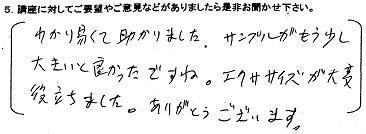 5. 講座に対してご要望やご意見などがありましたら是非お聞かせ下さい。
わかり易くて助かりました. サンプルがもう少し
大きいと良かったですね。エクササイズが大変
役立ちました。ありがとうございます。